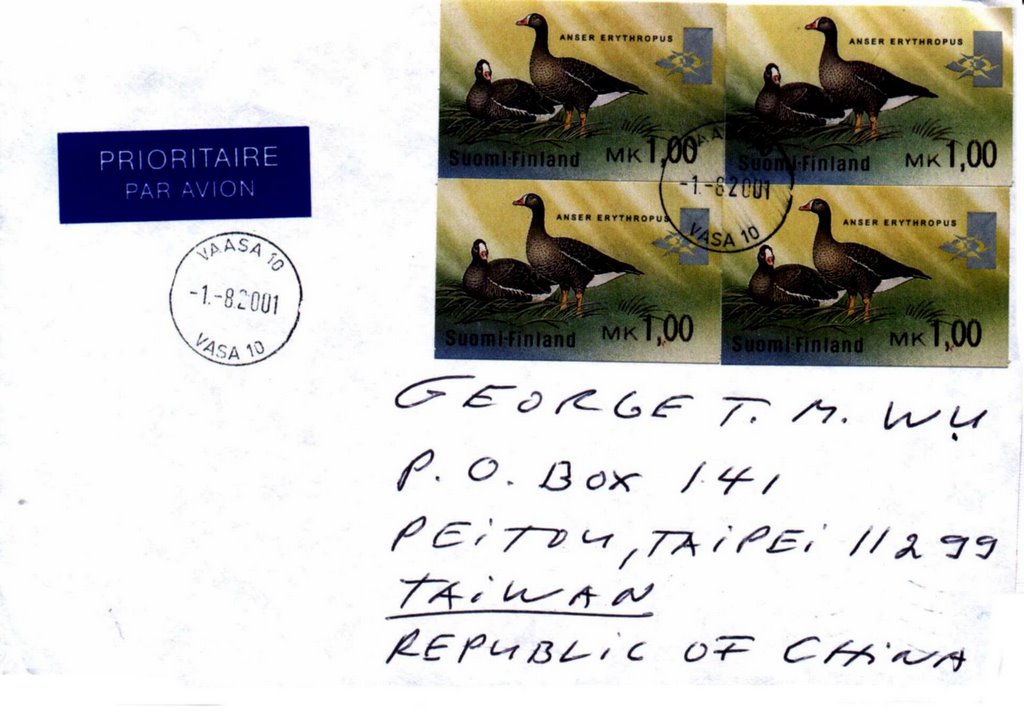 ANSER ERYTHROPUS
Suomi-Finland MK 1,00
ANSER ERYTHROPUS
Suomi-Finland MK 1,00
ANSER ERYTHROPUS
Suomi-Finland MK 1,00
ANSER ERYTHROPUS
Suomi-Finland MK 1,00
VAA
-1.-8.2001
VASA 10
PRIORITAIRE
PAR AVION
VAASA 10
-1.-8.2001
VASA 10
GEORGE T. M. WU
P. O. BOX 141
PEITOU, TAIPEI 11299
TAIWAN
REPUBLIC OF CHINA